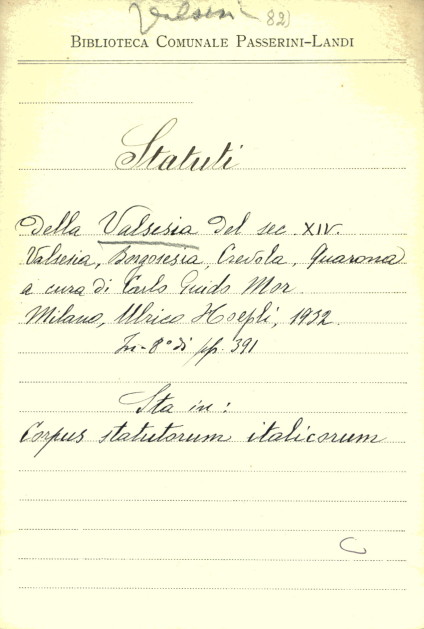 Valsesi 82)
BIBLIOTECA COMUNALE PASSERINI-LANDI
Statuti
della Valsesia del sec. XIV.
Valsesia, Borgosesia, Crevola, Quarona
a cura di Carlo Guido Mor
Milano, Ulrico Hoepli, 1932.
In-8° di pp. 391
Sta in:
Corpus statutorum italicorum
C